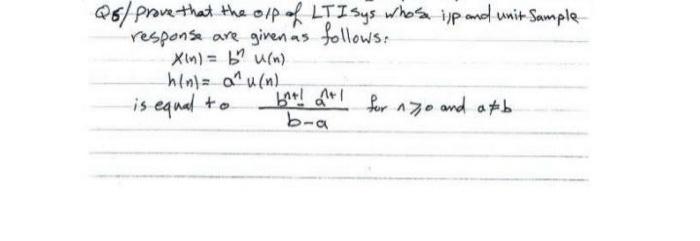 Q6/ prove that the o/p of LTI sys whose i/p and unit sample
response are given as follows:
x(n) = bⁿ u(n)
h(n) = aⁿ u(n)
is equal to (bⁿ⁺¹ - aⁿ⁺¹)/(b-a) for n≥0 and a≠b